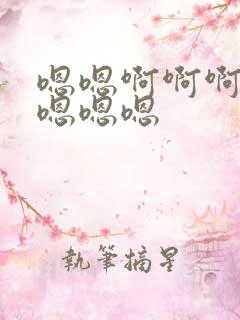 嗯嗯啊啊啊
嗯嗯嗯
執筆摘星